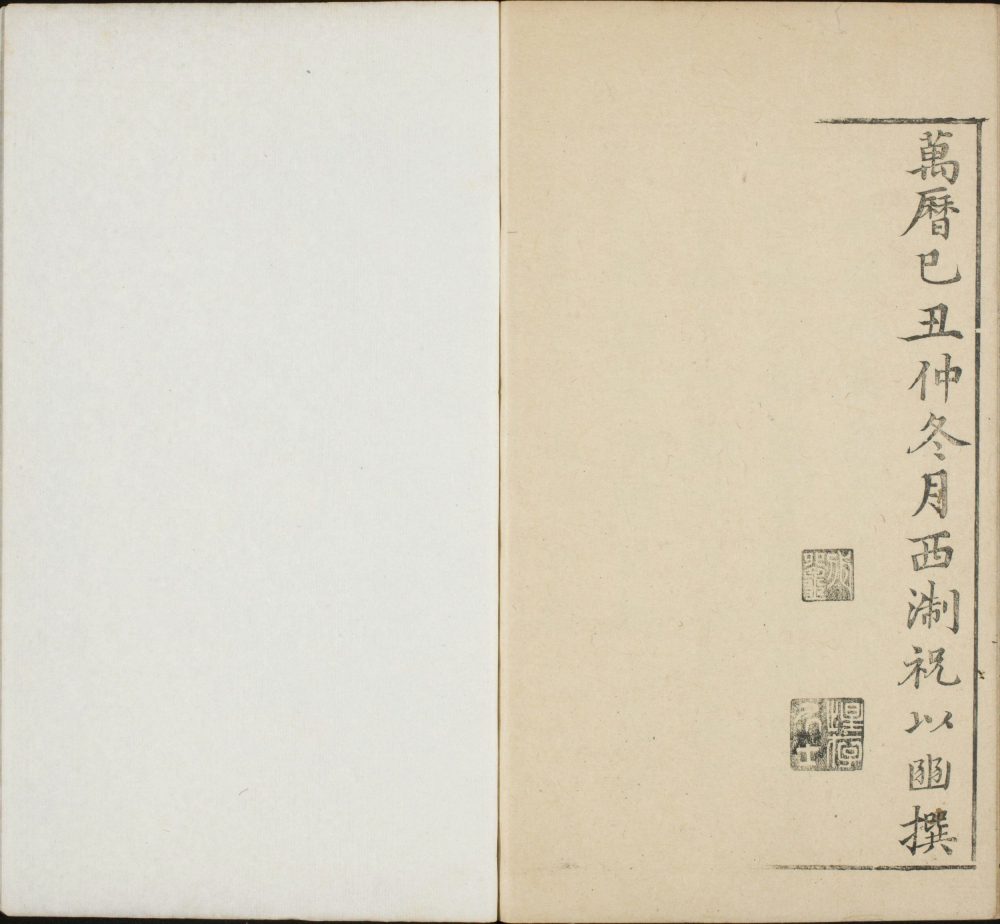 萬曆巳丑仲冬月西淛祝以豳撰